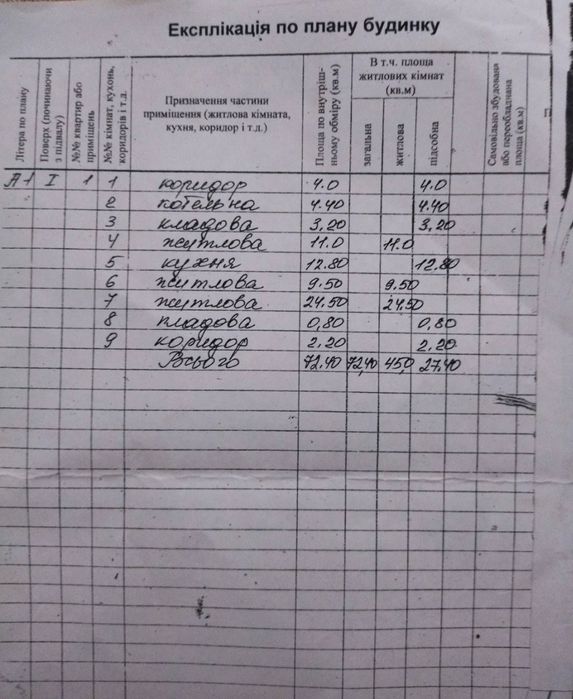 Експлікація по плану будинку
Літера по плану
Поверх (починаючи з підвалу)
№№ квартир або приміщень
№№ кімнат, кухонь, коридорів і т.д.
Призначення частини приміщення (житлова кімната, кухня, коридор і т.д.)
Площа по внутрішньому обміру (кв.м)
В т.ч. площа житлових кімнат (кв.м)
загальна
житлова
підсобна
Самовільно збудована або переобладнана площа (кв.м)
А-І І 1 1 коридор 4.0 4.0
2 котельна 4.40 4.40
3 кладова 3,20 3,20
4 житлова 11.0 11.0
5 кухня 12.80 12.80
6 житлова 9.50 9.50
7 житлова 24.50 24.50
8 кладова 0,80 0,80
9 коридор 2.20 2.20
Всього 72.40 72,40 45,0 27.40